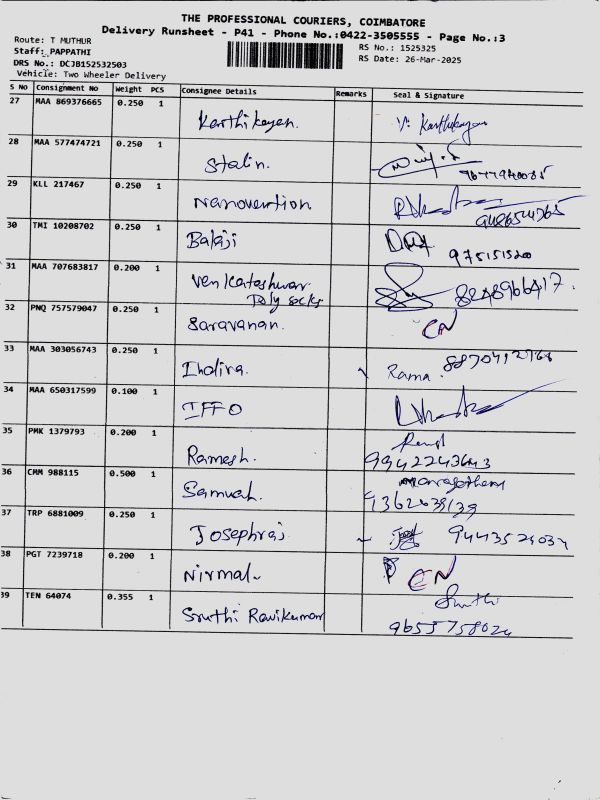 THE PROFESSIONAL COURIERS, COIMBATORE
Delivery Runsheet - P41 - Phone No.:0422-3505555 - Page No.:3
Route: T MUTHUR
Staff: PAPPATHI
RS No.: 1525325
DRS No.: DCJB152532503
RS Date: 26-Mar-2025
Vehicle: Two Wheeler Delivery
S No Consignment No Weight PCS Consignee Details Remarks Seal & Signature
27 MAA 869376665 0.250 1 Karthikeyan. V. Karthikeyan
28 MAA 577474721 0.250 1 Stalin.
29 KLL 217467 0.250 1 Nanovention
30 TMI 10208702 0.250 1 Balaji 975151520
31 MAA 707683817 0.200 1 Venkateshwar
Poly socks
32 PNQ 757579047 0.250 1 Saravanan. CN
33 MAA 303056743 0.250 1 Indira. Rama.
34 MAA 650317599 0.100 1 IFFO
35 PMK 1379793 0.200 1 Ramesh.
36 CMM 988115 0.500 1
37 TRP 6881009 0.250 1 Josephraj
38 PGT 7239718 0.200 1 Nirmal. CN
39 TEN 64074 0.355 1 Sruthi Ravikumar Sruthi
9655758024